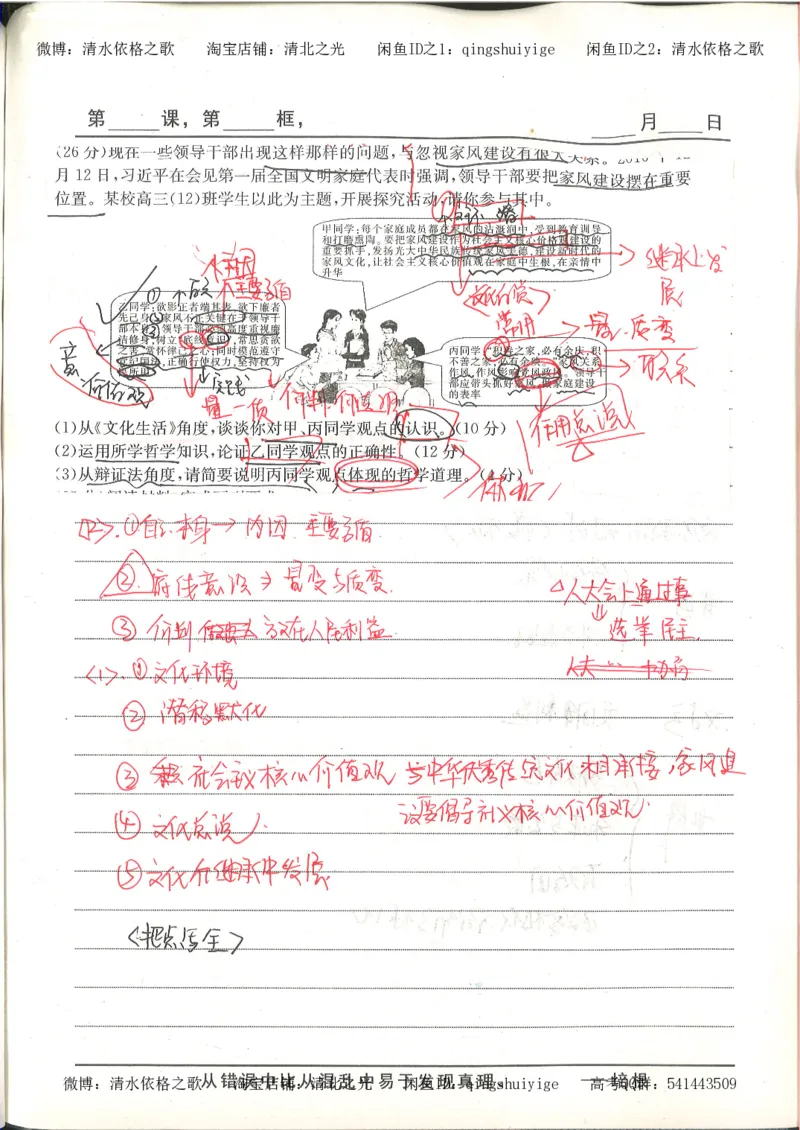 微博：清水依格之歌 淘宝店铺：清北之光 闲鱼ID之1：qingshuiyige 闲鱼ID之2：清水依格之歌
第 课，第 框， 月 日
(26分)现在一些领导干部出现这样那样的问题,与忽视家风建设有很大关系。2016年12
月12日,习近平在会见第一届全国文明家庭代表时强调,领导干部要把家风建设摆在重要
位置。某校高三(12)班学生以此为主题,开展探究活动,请你参与其中。
甲同学:每个家庭成员都在家风的沾溉润中,受到教育训导
和打磨熏陶。要把家风建设作为社会主义核心价值观建设的
重要抓手,发扬光大中华民族传统家风美德,建设新时代的
家风文化,让社会主义核心价值观在家庭中生根,在亲情中
升华
继承与发
展
内因
主要矛盾
乙同学:欲影正者端其表,欲下廉者
先己身。家风不正关键在于领导干
部本身。领导干部必须高度重视廉
洁修身,树立"底线意识",常思贪欲
之害,常怀律己之心;同时模范遵守
党纪国法,正确行使权力,坚持权为
民所用
丙同学:"积善之家,必有余庆,积
不善之家,必有余殃。"家风关系
作风,作风影响党风政风。领导干
部应带头抓好家风,做家庭建设
的表率
量、质变
联系
作用意识
(1)从《文化生活》角度,谈谈你对甲、丙同学观点的认识。(10分)
(2)运用所学哲学知识,论证乙同学观点的正确性。(12分)
(3)从辩证法角度,请简要说明丙同学观点体现的哲学道理。(4分)
<2>.①自己本身→内因 主要矛盾
②.底线意识→量变与质变.
△人大会上通过事
③ 价判 立在人民利益
选举民主.
<1>.①文化环境
②潜移默化
③ 社会主义核心价值观 与中华优秀传统文化相承接,家风建
设要倡导社义核心价值观.
④ 文化
⑤文化在继承中发展
<把点写全>
从错误中比从混乱中易于发现真理。 ——培根
微博：清水依格之歌 淘宝店铺：清北之光 闲鱼ID：qingshuiyige 高考QQ群：541443509